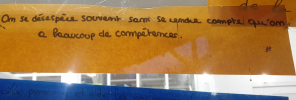 de la
On se désespère souvent sans se rendre compte qu'on
a Beaucoup de compétences.
"